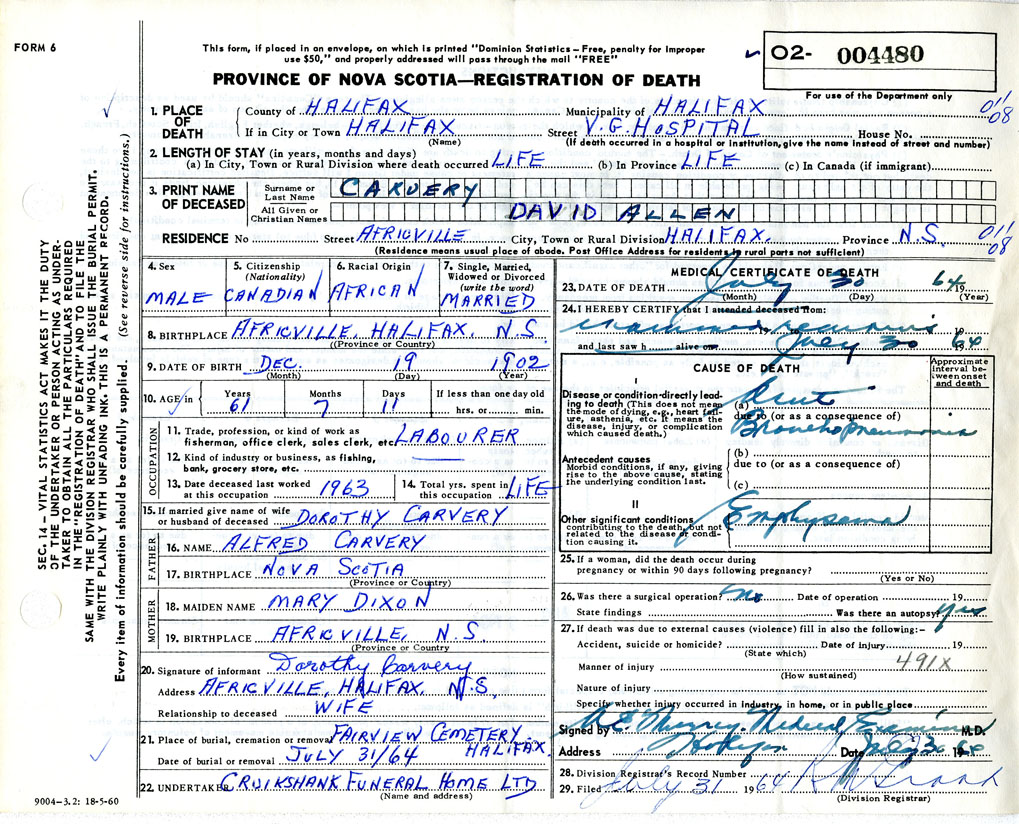 FORM 6
This form, if placed in an envelope, on which is printed "Dominion Statistics – Free, penalty for improper
use $50," and properly addressed will pass through the mail "FREE"
02- 004480
For use of the Department only
PROVINCE OF NOVA SCOTIA—REGISTRATION OF DEATH
011
08
1. PLACE OF DEATH
County of HALIFAX Municipality of HALIFAX
If in City or Town HALIFAX Street V.G. HOSPITAL House No.
(Name) (If death occurred in a hospital or institution, give the name instead of street and number)
2. LENGTH OF STAY (in years, months and days)
(a) In City, Town or Rural Division where death occurred LIFE (b) In Province LIFE (c) In Canada (if immigrant)
3. PRINT NAME OF DECEASED
Surname or Last Name CARVERY
All Given or Christian Names DAVID ALLEN
RESIDENCE No Street AFRICVILLE City, Town or Rural Division HALIFAX. Province N.S.
011
08
(Residence means usual place of abode. Post Office Address for residents in rural parts not sufficient)
4. Sex
MALE
5. Citizenship (Nationality)
CANADIAN
6. Racial Origin
AFRICAN
7. Single, Married, Widowed or Divorced (write the word)
MARRIED
8. BIRTHPLACE AFRICVILLE, HALIFAX, N.S.
(Province or Country)
9. DATE OF BIRTH DEC. 19 1902
(Month) (Day) (Year)
10. AGE in Years Months Days If less than one day old
61 7 11 hrs. or min.
OCCUPATION
11. Trade, profession, or kind of work as
fisherman, office clerk, sales clerk, etc. LABOURER
12. Kind of industry or business, as fishing,
bank, grocery store, etc.
13. Date deceased last worked
at this occupation 1963
14. Total yrs. spent in
this occupation LIFE
15. If married give name of wife
or husband of deceased DOROTHY CARVERY
FATHER
16. NAME ALFRED CARVERY
17. BIRTHPLACE NOVA SCOTIA
(Province or Country)
MOTHER
18. MAIDEN NAME MARY DIXON
19. BIRTHPLACE AFRICVILLE, N.S.
(Province or Country
20. Signature of informant Dorothy Carvery
Address AFRICVILLE, HALIFAX, N.S.
Relationship to deceased WIFE
21. Place of burial, cremation or removal FAIRVIEW CEMETERY.
HALIFAX.
Date of burial or removal JULY 31/64
22. UNDERTAKER CRUIKSHANK FUNERAL HOME LTD
(Name and address)
MEDICAL CERTIFICATE OF DEATH
23. DATE OF DEATH July 30 64
(Month) (Day) 19 (Year)
24. I HEREBY CERTIFY that I attended deceased from:
examined remains 19
and last saw h alive on July 30 19 64
CAUSE OF DEATH
Approximate interval between onset and death
I
Disease or condition directly leading to death (This does not mean the mode of dying, e.g., heart failure, asthenia, etc. It means the disease, injury, or complication which caused death.)
(a) Acute
due to (or as a consequence of)
Bronchopneumonia
Antecedent causes
Morbid conditions, if any, giving rise to the above cause, stating the underlying condition last.
(b)
due to (or as a consequence of)
(c)
II
Other significant conditions
contributing to the death, but not related to the disease or condition causing it.
Emphysema
25. If a woman, did the death occur during
pregnancy or within 90 days following pregnancy?
(Yes or No)
26. Was there a surgical operation? No Date of operation 19
State findings Was there an autopsy? Yes
27. If death was due to external causes (violence) fill in also the following:–
Accident, suicide or homicide? Date of injury 19
(State which)
491X
Manner of injury
(How sustained)
Nature of injury
Specify whether injury occurred in industry, in home, or in public place
Signed by Murray Medical Examiner M.D.
Address Halifax Date July 30 1964
28. Division Registrar's Record Number
29. Filed July 31 1964
(Division Registrar)
SEC. 14 – VITAL STATISTICS ACT MAKES IT THE DUTY
OF THE UNDERTAKER OR PERSON ACTING AS UNDER-
TAKER TO OBTAIN ALL THE PARTICULARS REQUIRED
IN THE "REGISTRATION OF DEATH" AND TO FILE THE
SAME WITH THE DIVISION REGISTRAR WHO SHALL ISSUE THE BURIAL PERMIT.
WRITE PLAINLY WITH UNFADING INK. THIS IS A PERMANENT RECORD.
Every item of information should be carefully supplied. (See reverse side for instructions.)
9004–3.2: 18-5-60